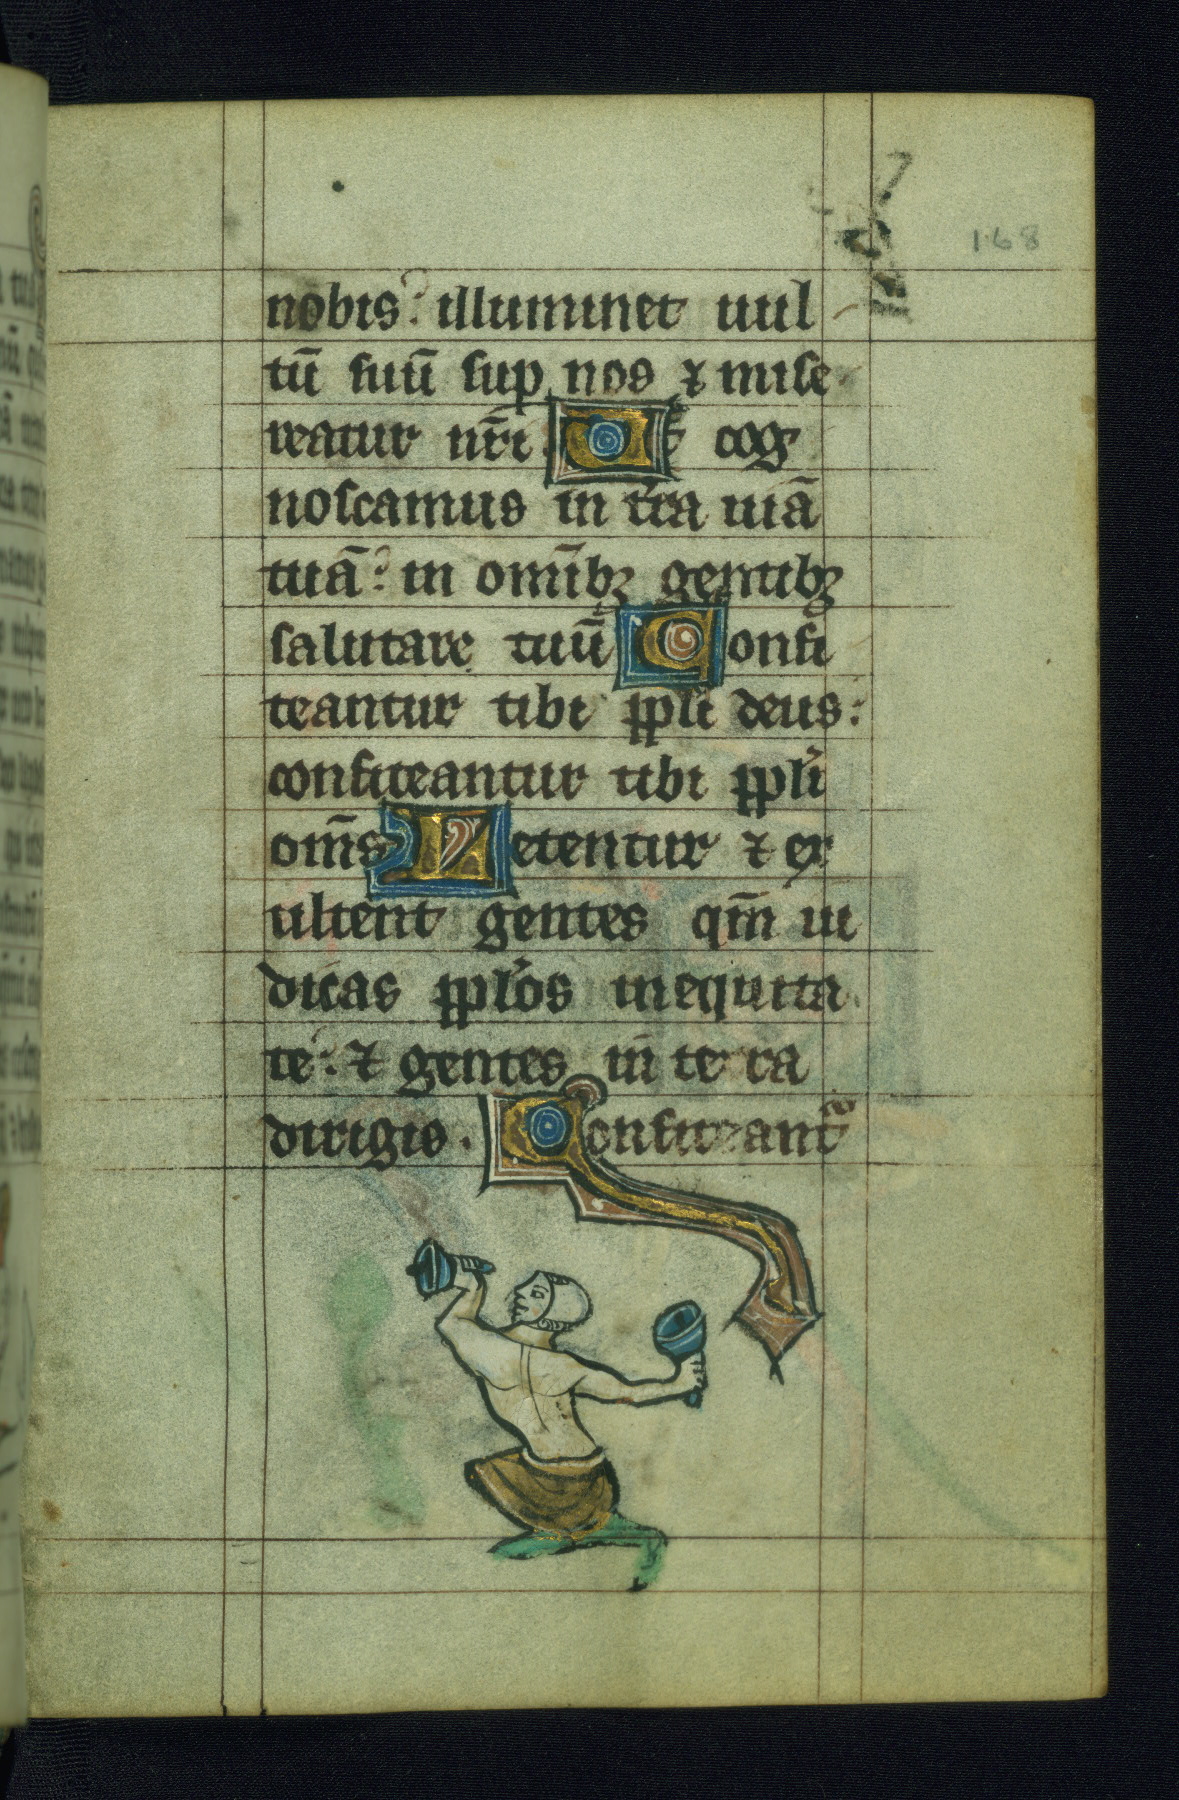 168
nobis: illuminet uul
tū suū sup nos ⁊ mise
reatur nr̄i Ut cog
noscamus in tr̄a uiā
tuā: in omībꝫ gentibꝫ
salutare tuū Confi
teantur tibi ppl̄i deus:
confiteantur tibi ppl̄i
om̄s Letentur ⁊ ex
ultent gentes qm̄ iu
dicas ppl̄os in equita
te: ⁊ gentes in terra
dirigis. Confiteant᷑